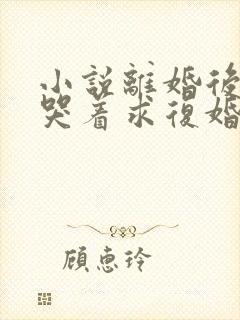 小説離婚後
哭着求復婚
顧惠玲